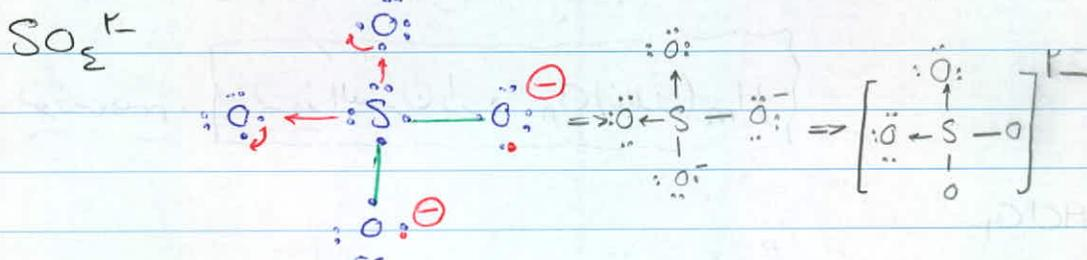 SO٤ ٢-
O
O ← S — O ⊖
O ⊖
=> O
O ← S — O -
O -
=> [ O
O ← S — O
O ] ٢-